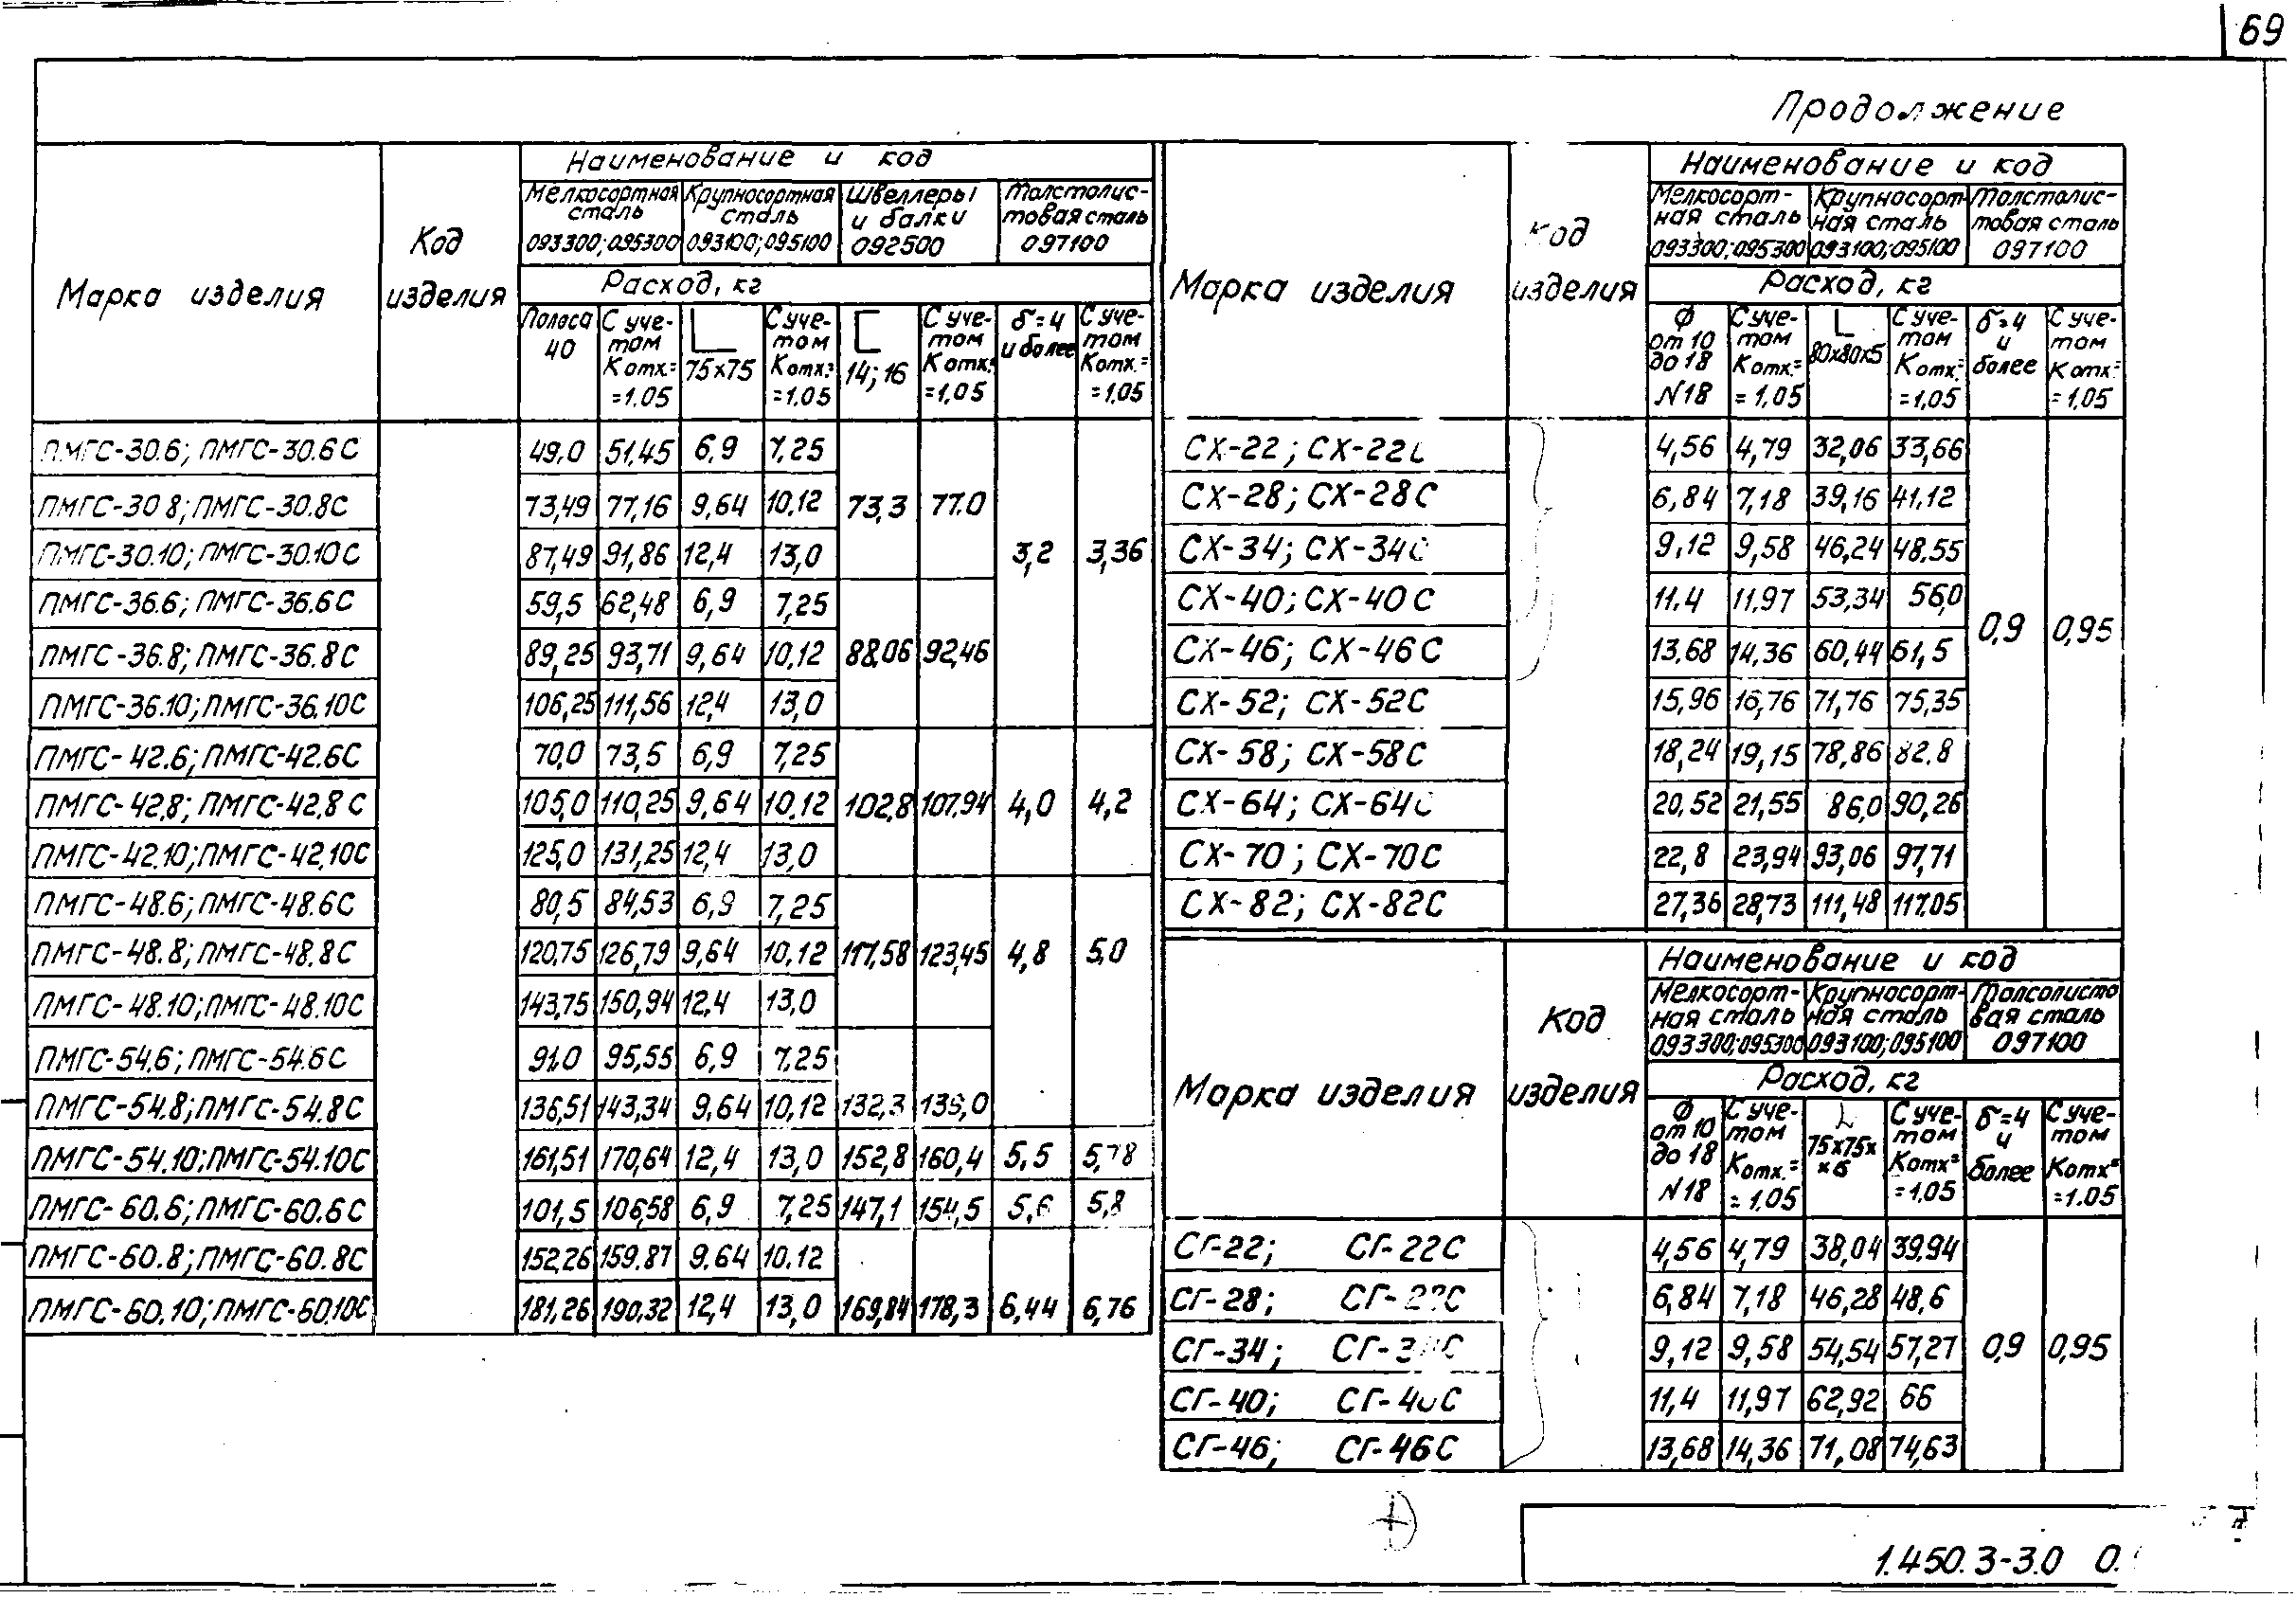 69
Продолжение
Марка изделия
Код изделия
Наименование и код
Мелкосортная сталь 093300; 095300
Крупносортная сталь 093100; 095100
Швеллеры и балки 092500
Толстолис-товая сталь 097100
Расход, кг
Полоса 40
С уче-том Котх.= =1.05
75×75
С уче-том Котх.= =1.05
14; 16
С уче-том Котх.= =1,05
δ=4 и более
С уче-том Котх.= =1,05
ПМГС-30.6; ПМГС-30.6С 49,0 51,45 6,9 7,25
ПМГС-30 8; ПМГС-30.8С 73,49 77,16 9,64 10,12 73,3 77.0
ПМГС-30.10; ПМГС-30.10С 87,49 91,86 12,4 13,0 3,2 3,36
ПМГС-36.6; ПМГС-36.6С 59,5 62,48 6,9 7,25
ПМГС-36.8; ПМГС-36.8С 89,25 93,71 9,64 10,12 88,06 92,46
ПМГС-36.10; ПМГС-36.10С 106,25 111,56 12,4 13,0
ПМГС-42.6; ПМГС-42.6С 70,0 73,5 6,9 7,25
ПМГС-42,8; ПМГС-42,8С 105,0 110,25 9,64 10,12 102,8 107,94 4,0 4,2
ПМГС-42.10; ПМГС-42,10С 125,0 131,25 12,4 13,0
ПМГС-48.6; ПМГС-48.6С 80,5 84,53 6,9 7,25
ПМГС-48.8; ПМГС-48.8С 120,75 126,79 9,64 10,12 117,58 123,45 4,8 5,0
ПМГС-48.10; ПМГС-48.10С 143,75 150,94 12,4 13,0
ПМГС-54.6; ПМГС-54.6С 91,0 95,55 6,9 7,25
ПМГС-54.8; ПМГС-54.8С 136,51 143,34 9,64 10,12 132,3 139,0
ПМГС-54.10; ПМГС-54.10С 161,51 170,64 12,4 13,0 152,8 160,4 5,5 5,78
ПМГС-60.6; ПМГС-60.6С 101,5 106,58 6,9 7,25 147,1 154,5 5,6 5,8
ПМГС-60.8; ПМГС-60.8С 152,26 159.87 9.64 10.12
ПМГС-60.10; ПМГС-60.10С 181,26 190,32 12,4 13,0 169,84 178,3 6,44 6,76
Марка изделия
Код изделия
Наименование и код
Мелкосорт-ная сталь 093300; 095300
Крупносорт-ная сталь 093100; 095100
Толстолис-товая сталь 097100
Расход, кг
Ф от 10 до 18 N18
С уче-том Котх.= =1,05
80×80×5
С уче-том Котх.= =1,05
δ=4 и более
С уче-том Котх.= =1,05
СХ-22; СХ-22С 4,56 4,79 32,06 33,66
СХ-28; СХ-28С 6,84 7,18 39,16 41,12
СХ-34; СХ-34С 9,12 9,58 46,24 48.55
СХ-40; СХ-40С 11.4 11.97 53,34 56,0
СХ-46; СХ-46С 13.68 14,36 60,44 61,5 0,9 0,95
СХ-52; СХ-52С 15,96 16,76 71,76 75,35
СХ-58; СХ-58С 18,24 19,15 78,86 82.8
СХ-64; СХ-64С 20,52 21,55 86,0 90,26
СХ-70; СХ-70С 22,8 23,94 93,06 97,71
СХ-82; СХ-82С 27,36 28,73 111,48 117,05
Марка изделия
Код изделия
Наименование и код
Мелкосорт-ная сталь 093300; 095300
Крупносорт-ная сталь 093100; 095100
Толсолисто вая сталь 097100
Расход, кг
Ф от 10 до 18 N18
С уче-том Котх.= =1,05
75×75× ×6
С уче-том Котх= =1,05
δ=4 и более
С уче-том Котх= =1.05
СГ-22; СГ-22С 4,56 4,79 38,04 39,94
СГ-28; СГ-28С 6,84 7,18 46,28 48,6
СГ-34; СГ-34С 9,12 9,58 54,54 57,27 0,9 0,95
СГ-40; СГ-40С 11,4 11,97 62,92 66
СГ-46; СГ-46С 13,68 14,36 71,08 74,63
1.450.3-3.0 0.